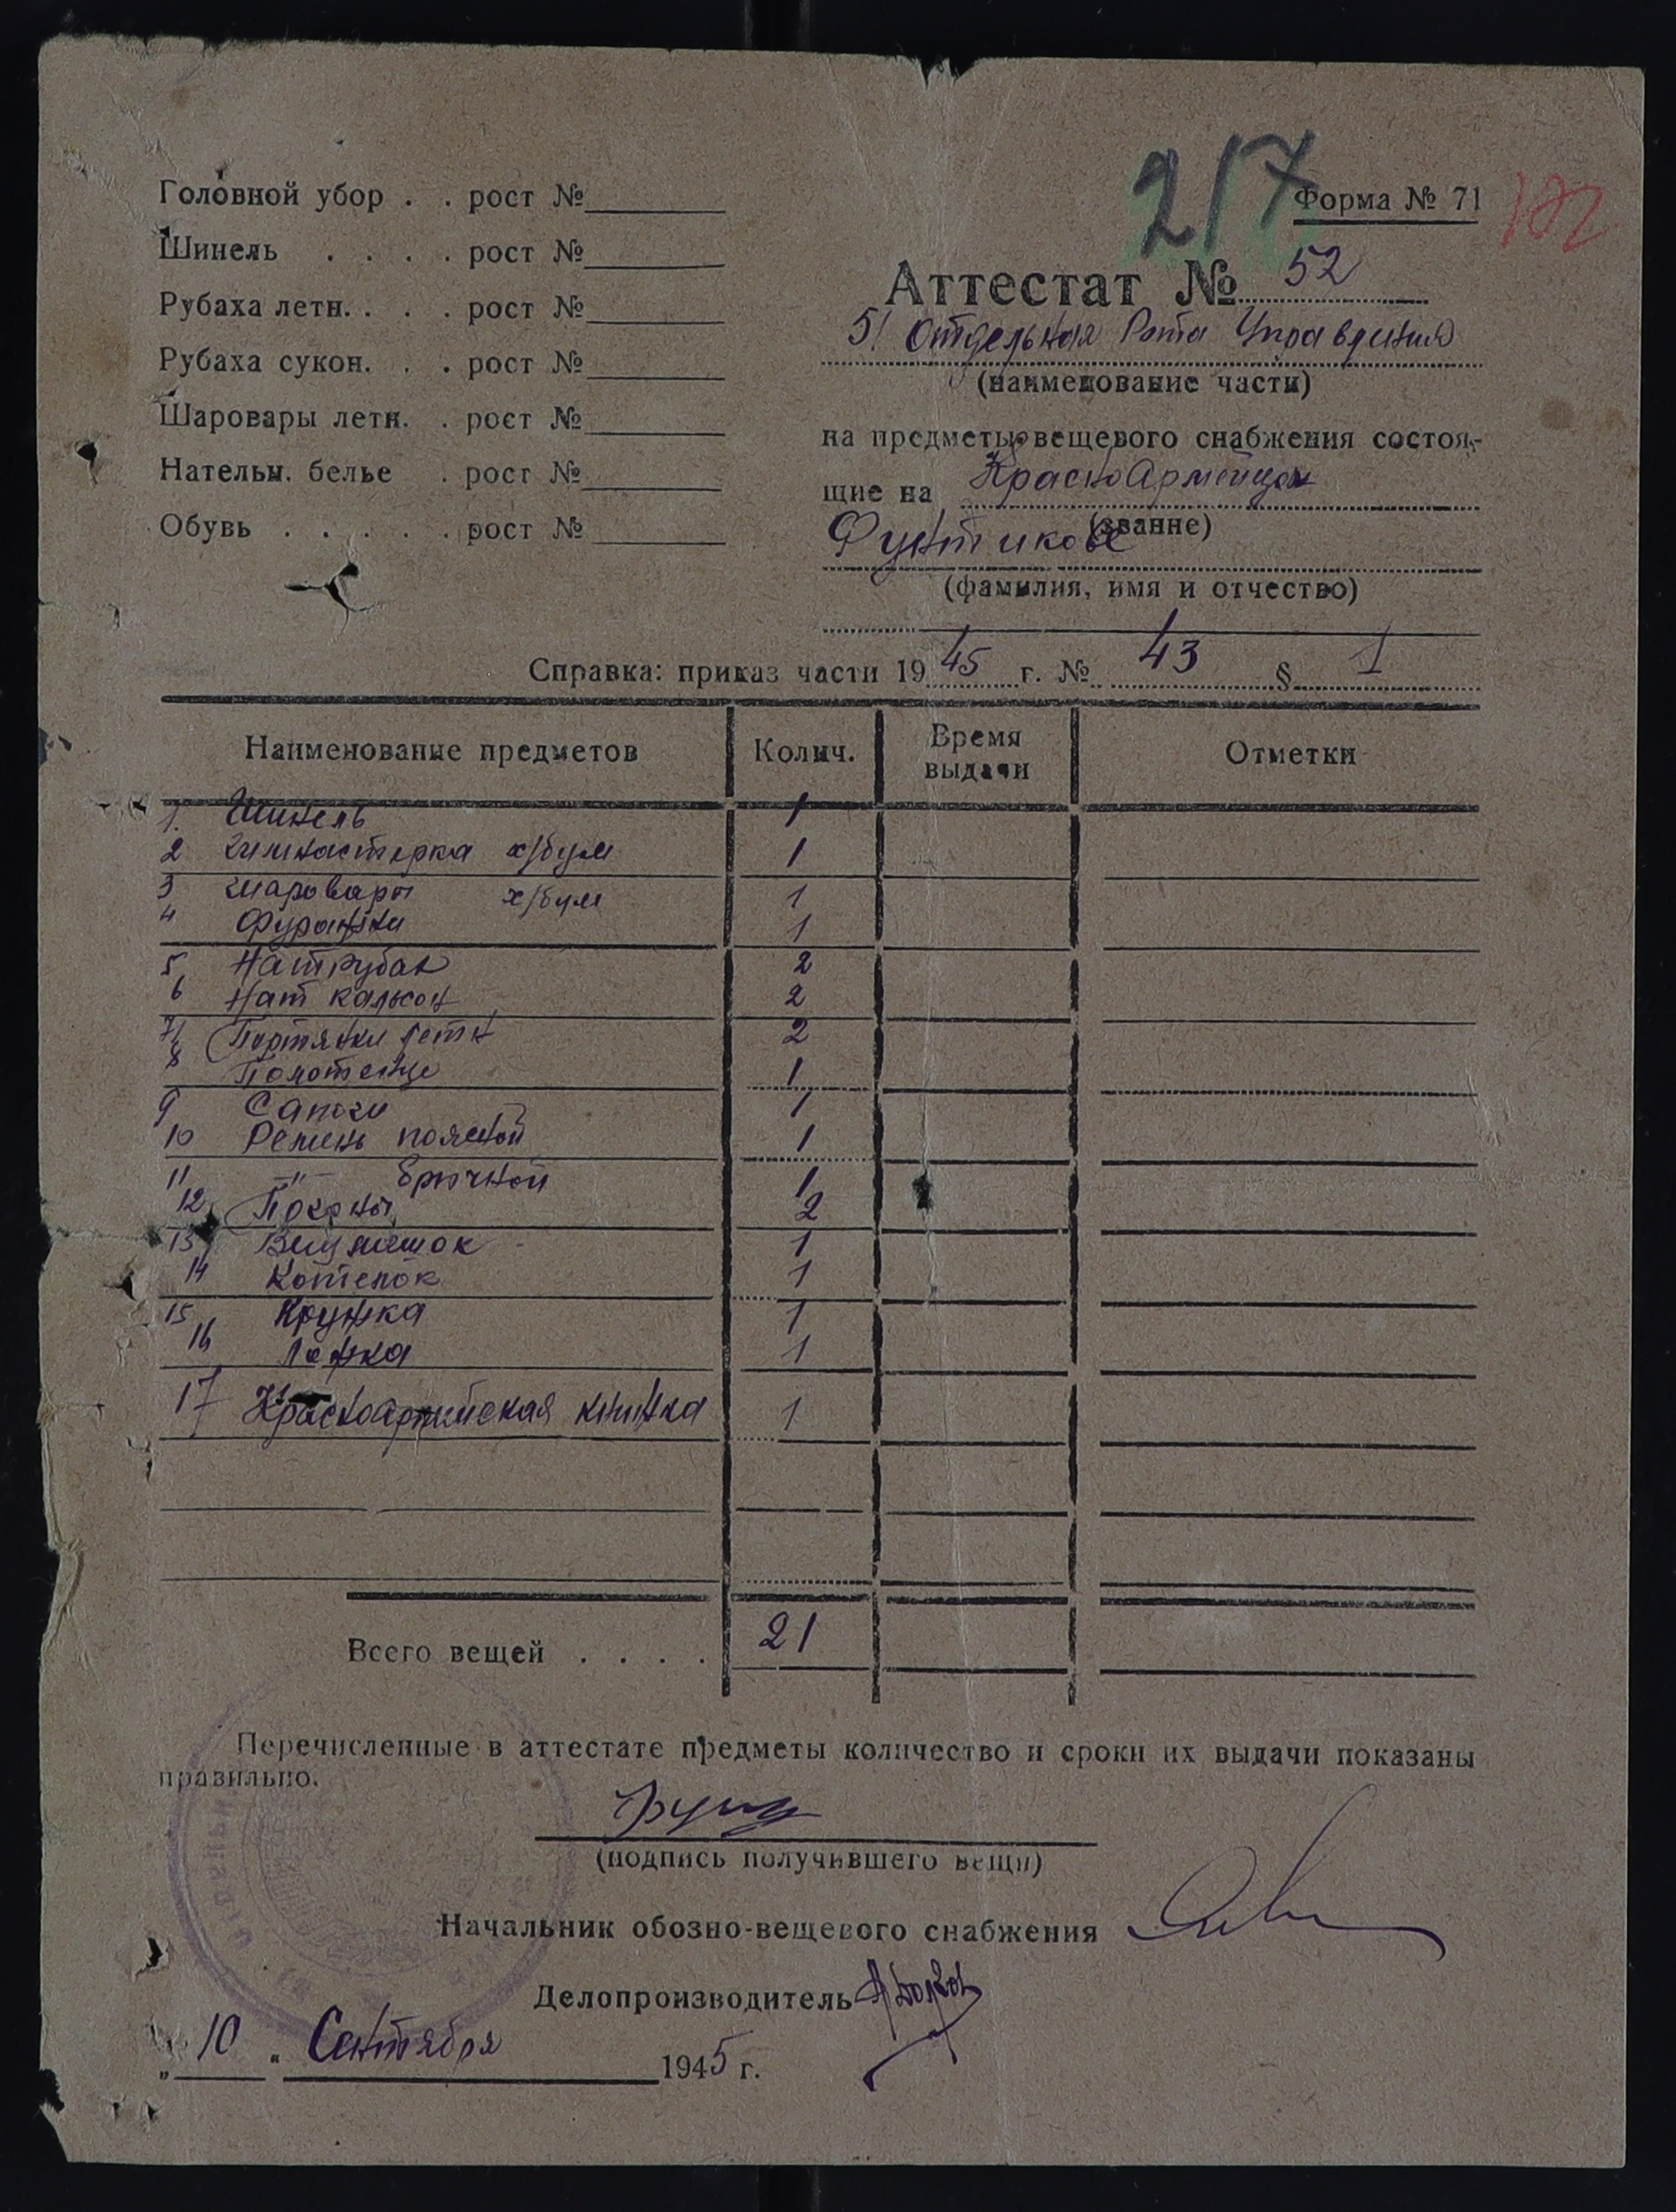 217
Форма № 71
Головной убор . . рост №
Шинель . . . . рост №
Рубаха летн. . . . рост №
Рубаха сукон. . . рост №
Шаровары летн. . рост №
Нательн. белье . рост №
Обувь . . . . . рост №
Аттестат № 52
51 Отдельная Рота Управления
(наименование части)
на предметы вещевого снабжения состоя-
щие на КрасноАрмейцем
(звание)
Фунтикове
(фамилия, имя и отчество)
Справка: приказ части 1945 г. № 43 § 1
Наименование предметов Колич. Время выдачи Отметки
1. Шинель 1
2 гимнастерка х/бум 1
3 шаровары х/бум 1
4 Фуражки 1
5 Нат рубах 2
6 Нат кальсон 2
7 Портянки летн 2
8 Полотенце 1
9 Сапоги 1
10 Ремень поясной 1
11 —"— брючной 1
12 Погоны 2
13 Вещмешок 1
14 Котелок 1
15 Кружка 1
16 Ложка 1
17 Красноармейская книжка 1
Всего вещей . . . . 21
Перечисленные в аттестате предметы количество и сроки их выдачи показаны
правильно.
(подпись получившего вещи)
Начальник обозно-вещевого снабжения
Делопроизводитель
„ 10 " Сентября 1945 г.